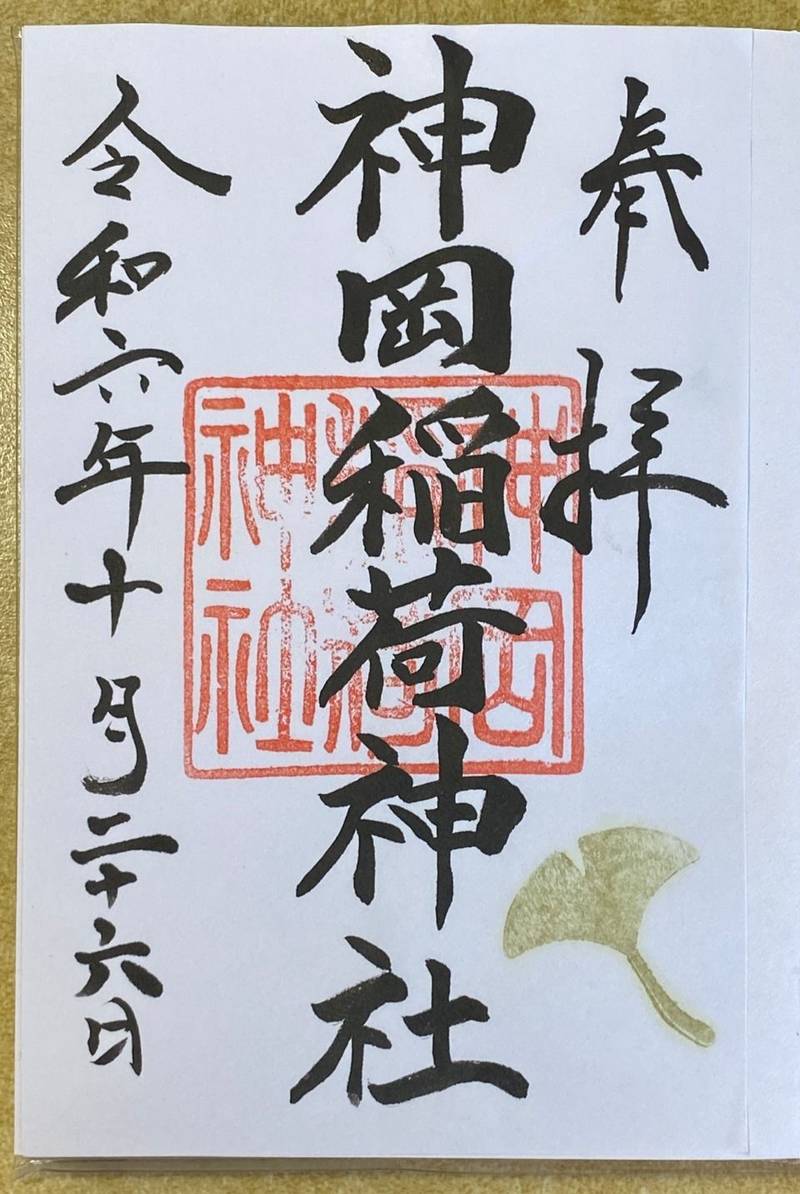 奉拝
神岡稲荷神社
神岡
稲荷
神社
令和六年十月二十六日